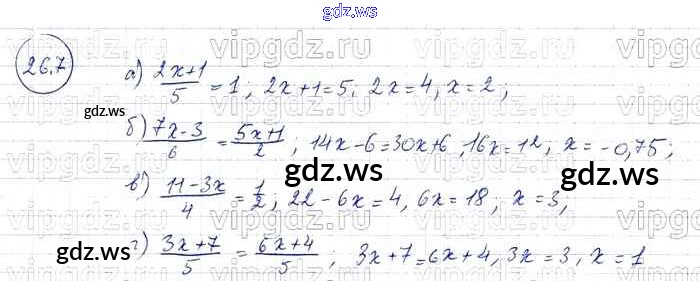 gdz.ws
26.7
а) (2x+1)/5 = 1; 2x+1=5. 2x=4, x=2;
б) (7x-3)/6 = (5x+1)/2; 14x-6=30x+6, 16x=12, x=-0,75;
в) (11-3x)/4 = 1/2; 22-6x=4, 6x=18, x=3,
г) (3x+7)/5 = (6x+4)/5; 3x+7=6x+4, 3x=3, x=1
vipgdz.ru
vipgdz.ru
vipgdz.ru
gdz.ws
gdz.ws
gdz.ws
gdz.ws
gdz.ws